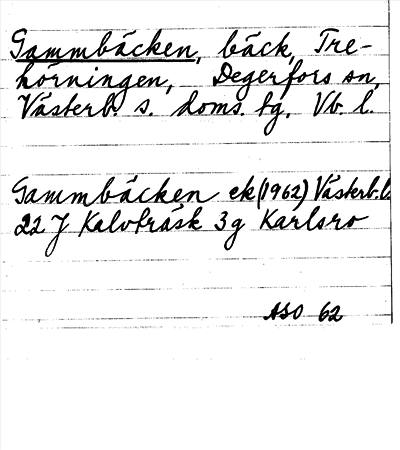 Gammbäcken, bäck, Tre-
hörningen, Degerfors sn,
Västerb. s. doms. tg, Vb. l.
Gammbäcken ek (1962) Västerb. l.
22 J Kalvträsk 3g Karlsro
ASO 62